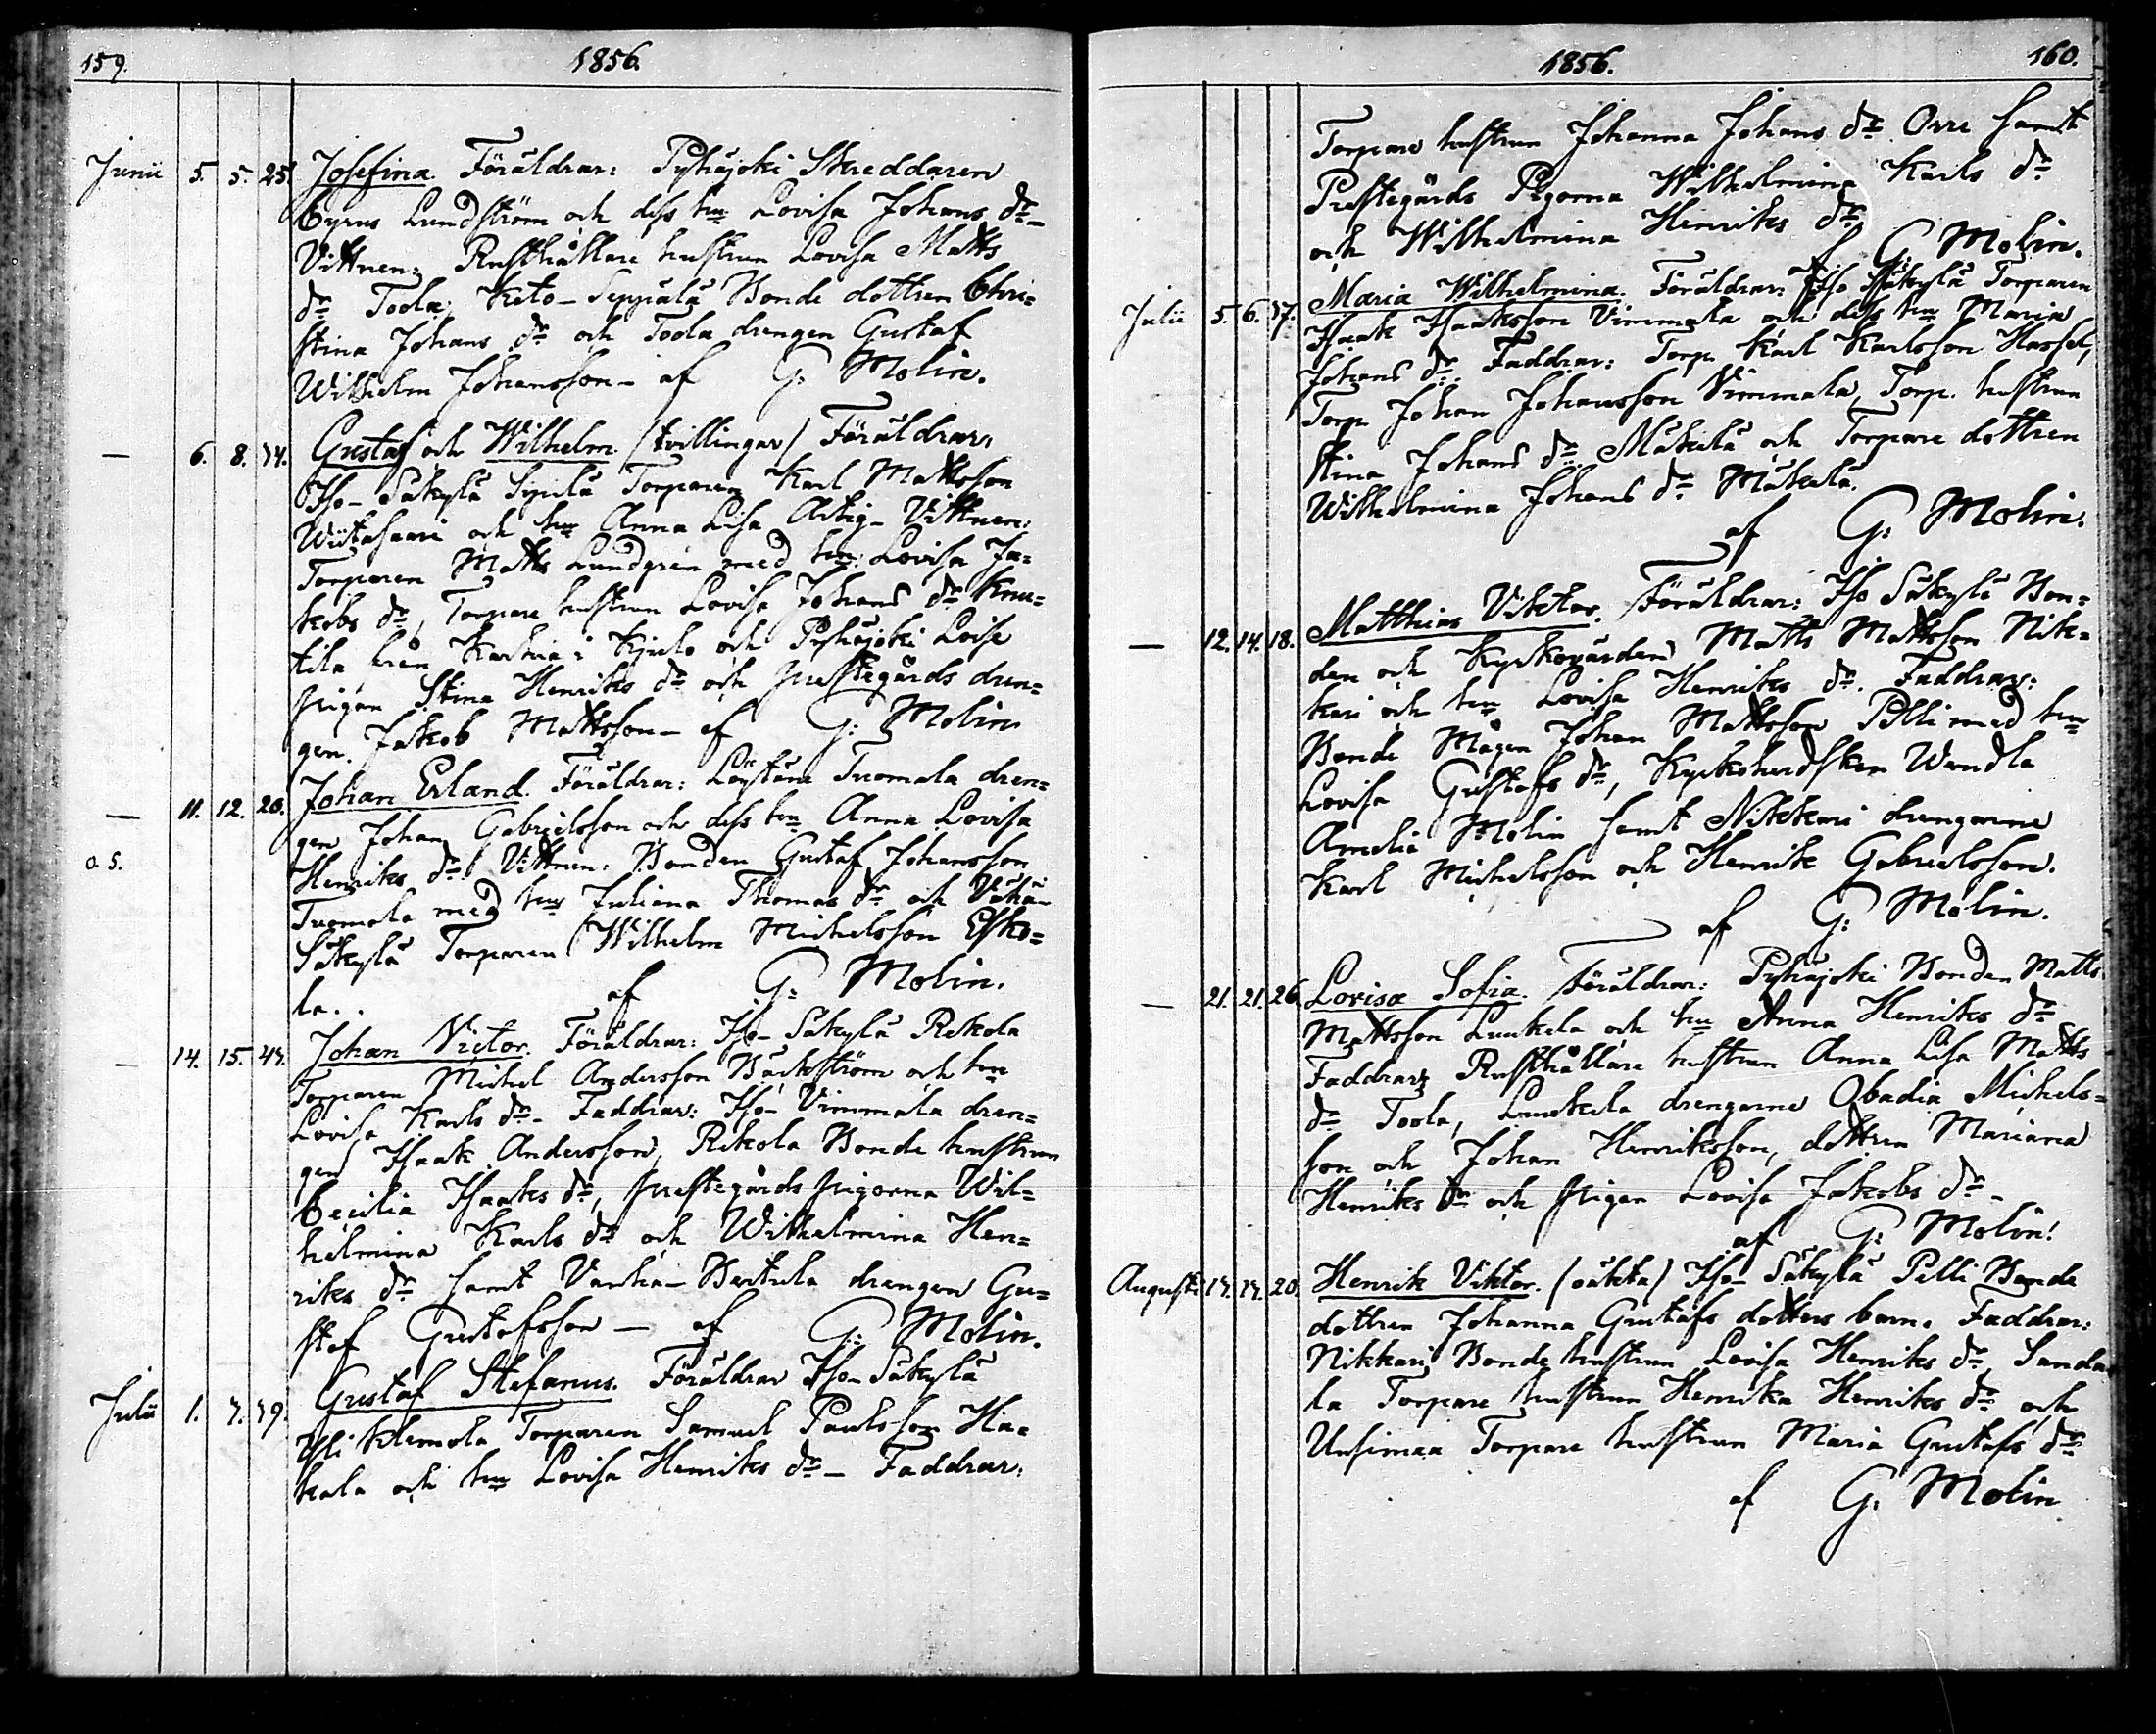 159. 1856.
Junii 5. 5. 25. Josefina. Föräldrar: Pyhäjoki Skreddaren
Cyrus Lundström och dess hu Lovisa Johans dr -
Vittnen: Rusthållare hustrun Lovisa Matts
dr Toola, Keto-Seppälä Bonde dottren Chri=
stina Johans dr och Toola drengen Gustaf
Wilhelm Johansson - af G: Molin.
— 6. 8. 74. Gustaf och Wilhelm (tvillingar) Föräldrar,
Iso-Säkylä Sipilä Torparen Karl Mattsson
Wiitasaari och hu Anna Lisa Artig - Vittnen:
Torparen Matts Lundgrén med hu: Lovisa Ja=
kobs dr, Torpare hustrun Lovisa Johans dr Knu=
tila från Karhia i Kjulo och Pyhäjoki Loise
pigan Stina Henriks dr och prestegårds dren=
gen Jakob Mattsson - af G: Molin
— 11. 12. 20. Johan Erland. Föräldrar: Löytäne Tuomala dren=
gen Johan Gabrielsson och dess hu Anna Lovisa
o. 5. Henriks dr. Vittnen: Bonden Gustaf Johansson
Tuomola med hu Juliana Thomas dr och Vähä-
Säkylä Torparen Wilhelm Michelsson Esko=
la.. af G: Molin.
— 14. 15. 24. Johan Victor. Föräldrar: Iso-Säkylä Rekola
Torparen Michel Andersson Bäckström och hu
Lovisa Karls dr - Faddrar: Iso-Vimmala dren=
gen Isaak Andersson, Rekola Bonde hustrun
Cecilia Isaaks dr, prestegårds pigorna Wil=
helmina Karls dr och Wilhelmina Hen=
riks dr samt Vanha-Perttula drengen Gu=
staf Gustafsson — af G: Molin.
Julii 1. 7. 79. Gustaf Stefanus. Föräldrar Iso-Säkylä
Yli Klemola Torparen Samuel Paulsson Ha=
kala och hu Lovisa Henriks dr - Faddrar:
1856. 160.
Torpare hustrun Johanna Johans dr Orre samt
Prestegårds Pigorna Wilhelmina Karls dr
och Wilhelmina Henriks dr
af G: Molin.
Julii 5. 6. 17. Maria Wilhelmina. Föräldrar: Iso Säkylä Torparen
Isaak Isaksson Vimmala och dess hu Maria
Johans dr. Faddrar: Torp. Karl Karlsson Hassel,
Torp. Johan Johansson Vimmala, Torp. hustrun
Stina Johans dr Mäkelä och Torpare dottren
Wilhelmina Johans dr Mäkelä.
af G: Molin.
— 12. 14. 18. Matthias Viktor. Föräldrar: Iso Säkylä Bon=
den och Kyrkovärden Matts Mattsson Nik=
kari och hu Lovisa Henriks dr. Faddrar:
Bonde Mågen Johan Mattsson Pilli med hu
Lovisa Gustafs dr, Kyrkoherdskan Wendla
Amalia Molin samt Nikkari drengarne
Karl Michelsson och Henrik Gabrielsson.
af G: Molin.
— 21. 21. 26. Lovisa Sofia. Föräldrar: Pyhäjoki Bonden Matts
Mattsson Luukela och hu Anna Henriks dr
Faddrar; Rusthållare hustrun Anna Lisa Matts
dr Toola, Luukela drengarne Obadia Michels=
son och Johan Henriksson, dottren Mariana
Henriks dr och Pigan Lovisa Jakobs dr -
af G: Molin.
Augusti 17. 17. 20. Henrik Viktor. (oäkta) Iso-Säkylä Pelli Bonde
dottren Johanna Gustafs dotters barn. Faddrar:
Nikkari Bonde hustrun Lovisa Henriks dr, Sanda
la Torpare hustrun Henrika Henriks dr och
Uusimaa Torpare hustrun Maria Gustafs dr
af G: Molin